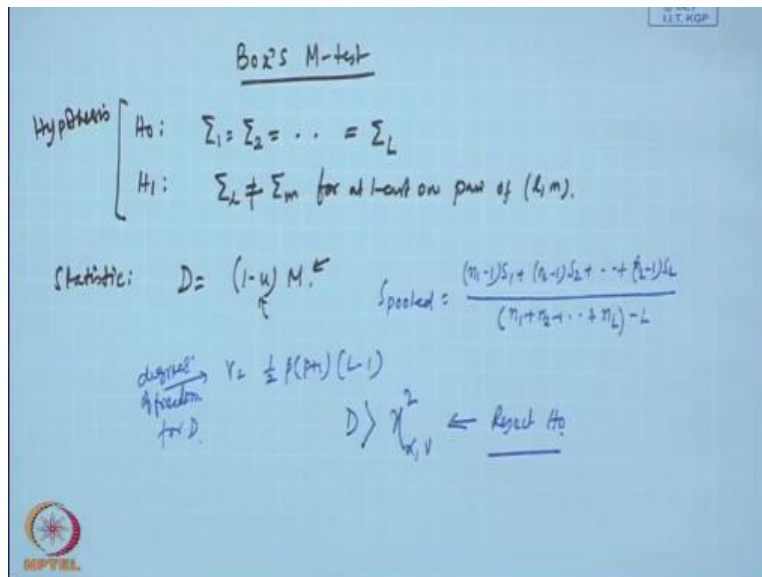 I.I.T. KGP
Box's M-test
Hypothesis H0: Σ1 = Σ2 = . . = ΣL
H1: Σl ≠ Σm for at least on pair of (l, m).
Statistic: D = (1-u) M.
Spooled = (n1-1)S1 + (n2-1)S2 + . . + (nL-1)SL
(n1+n2+ . . + nL) - L
degrees of freedom for D. → ν = 1/2 p(p+1)(L-1)
D > χ²α,ν ← Reject H0
NPTEL